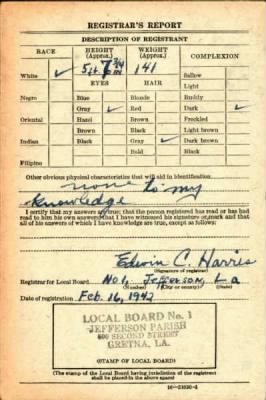 REGISTRAR'S REPORT
DESCRIPTION OF REGISTRANT
RACE HEIGHT (Approx.) WEIGHT (Approx.) COMPLEXION
5 ft 6 3/4 in 141
White ✓ EYES HAIR Sallow
Light
Negro Blue Blonde Ruddy
Gray ✓ Red Dark ✓
Oriental Hazel Brown Freckled
Brown Black Light brown
Indian Black Gray ✓ Dark brown
Bald Black
Filipino
Other obvious physical characteristics that will aid in identification
none to my
knowledge
I certify that my answers are true; that the person registered has read or has had
read to him his own answers; that I have witnessed his signature or mark and that all
of his answers of which I have knowledge are true, except as follows:
Edwin C. Harris
(Signature of registrar)
Registrar for Local Board No 1, Jefferson, La
(Number) (City or county) (State)
Date of registration Feb. 16, 1942
LOCAL BOARD No. 1
JEFFERSON PARISH
SECOND STREET
GRETNA, LA.
(STAMP OF LOCAL BOARD)
(The stamp of the Local Board having jurisdiction of the registrant
shall be placed in the above space)